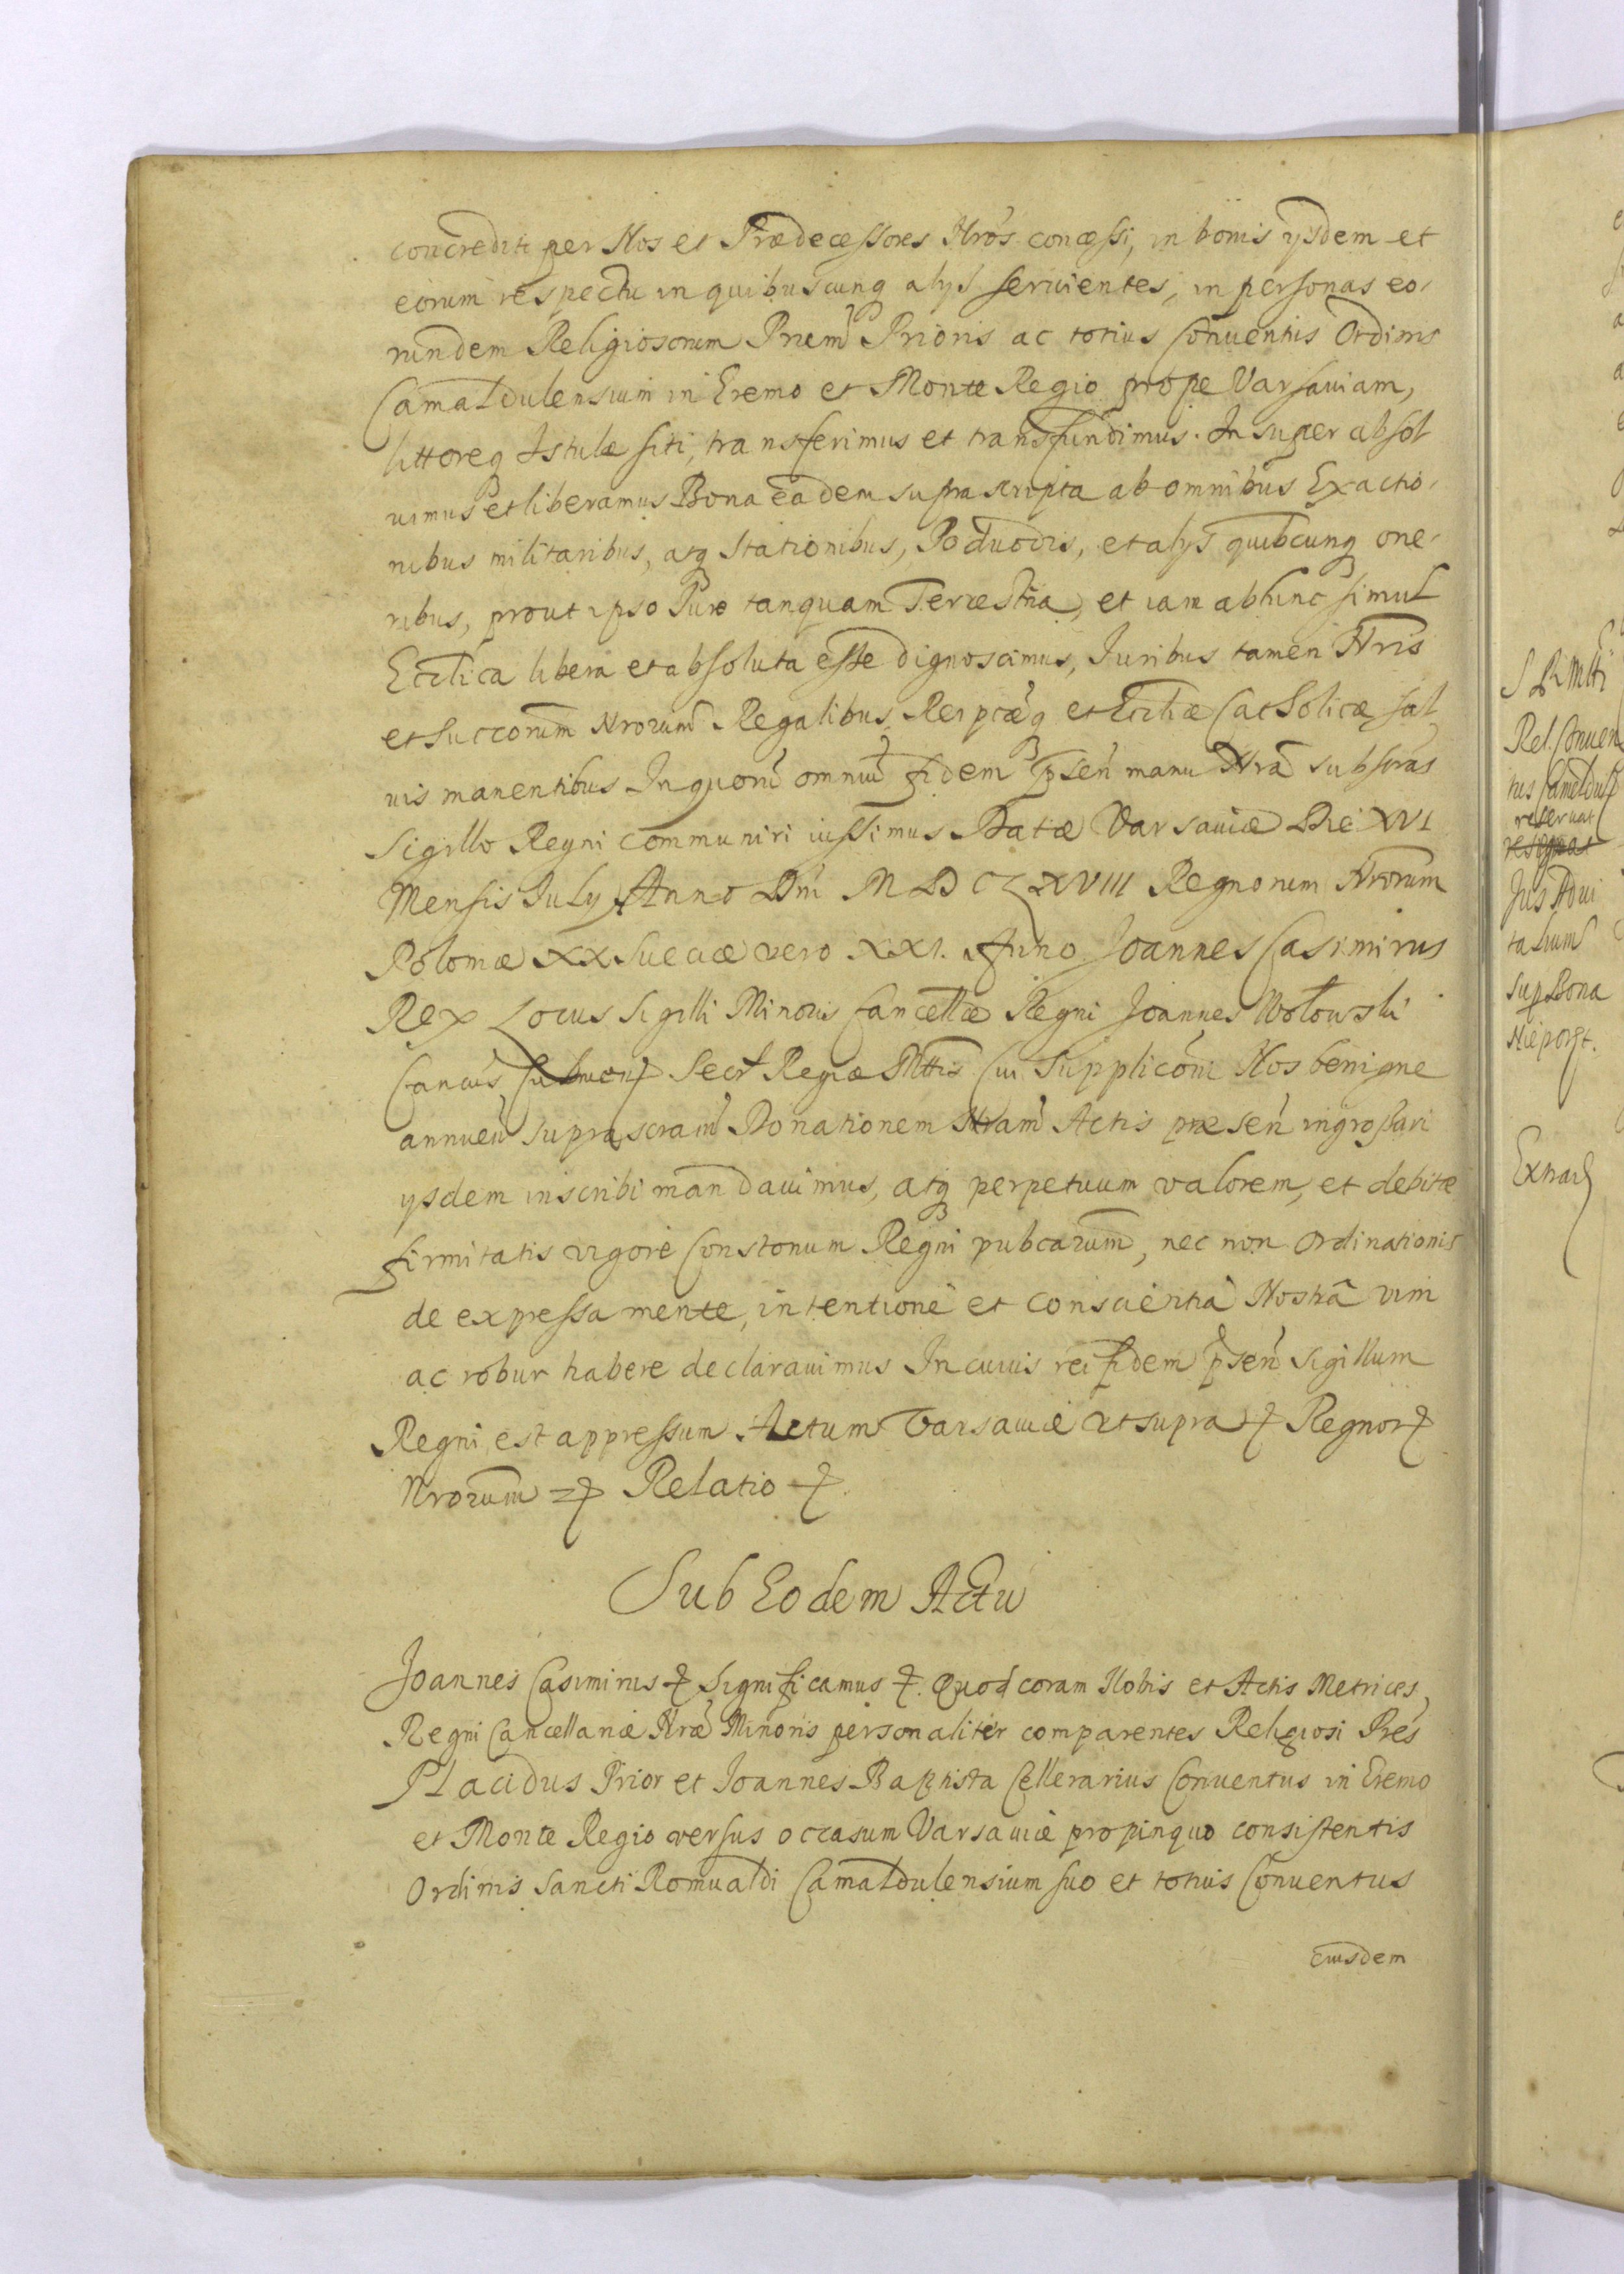 concrediti per Nos et Prædecessores Nros concessi, in bonis ysdem et
eorum respectu in quibuscunq alys seruientes, in personas eo,
rundem Religiosorum Prem Prioris ac totius Conuentus Ordinis
Camaldulensium in Eremo et Monte Regio prope Varsauiam,
littoreq Istulæ siti, transferimus et transfundimus. Insuper absol
uimus et liberamus Bona eadem supra scripta ab omnibus Exactio,
nibus militaribus, atq Stationibus, Poduodis, et alys quibcunq one,
ribus, prout ipso Jure tanquam Terrestria, et iam abhinc simul
Ecclica libera et absoluta esse dignoscimus, Juribus tamen Nris
et Succorum Nrorum Regalibus Reipcæq et Eccliæ Catholicæ sal
uis manentibus In quorũ omniũ fidem psen manu Nra subscras
Sigillo Regni communiri iussimus Datæ Varsauiæ Die XVI
Mensis July Anno Dni MDCLXVIII Regnorum Nrorum
Poloniæ XX Sueciæ vero XXI. Anno Joannes Casimirus
Rex Locus Sigilli Minoris Cancellæ Regni Joannes Wołowski
Cancus Secr Regiæ Mttis Cui Supplicõni Nos benigne
annuen suprascram Donationem Nram Actis præsen ingrossari
ysdem inscribi mandauimus, atq perpetuum valorem, et debitæ
firmitatis vigore Constonum Regni pubcarum, nec non Ordinationis
de expressa mente, intentione et conscientia Nostra vim
ac robur habere declarauimus In cuius rei fidem psen sigillum
Regni est appressum Actum Varsauiæ ut supra Regnor
Nrorum Relatio
Sub Eodem Actu
Joannes Casimirus Significamus Quod coram Nobis et Actis Metrices,
Regni Cancellariæ Nræ Minoris personaliter comparentes Religiosi Pres
Placidus Prior et Joannes Baptista Cellerarius Conuentus in Eremo
et Monte Regio versus occasum Varsauiæ propinquo consistentis
Ordinis Sancti Romualdi Camaldulensium suo et totius Conuentus
Eiusdem
Rel. Conuen
tus Camaldul
reseruat
resignat
Jus Adui
talium
sup Bona
Nieporęt.